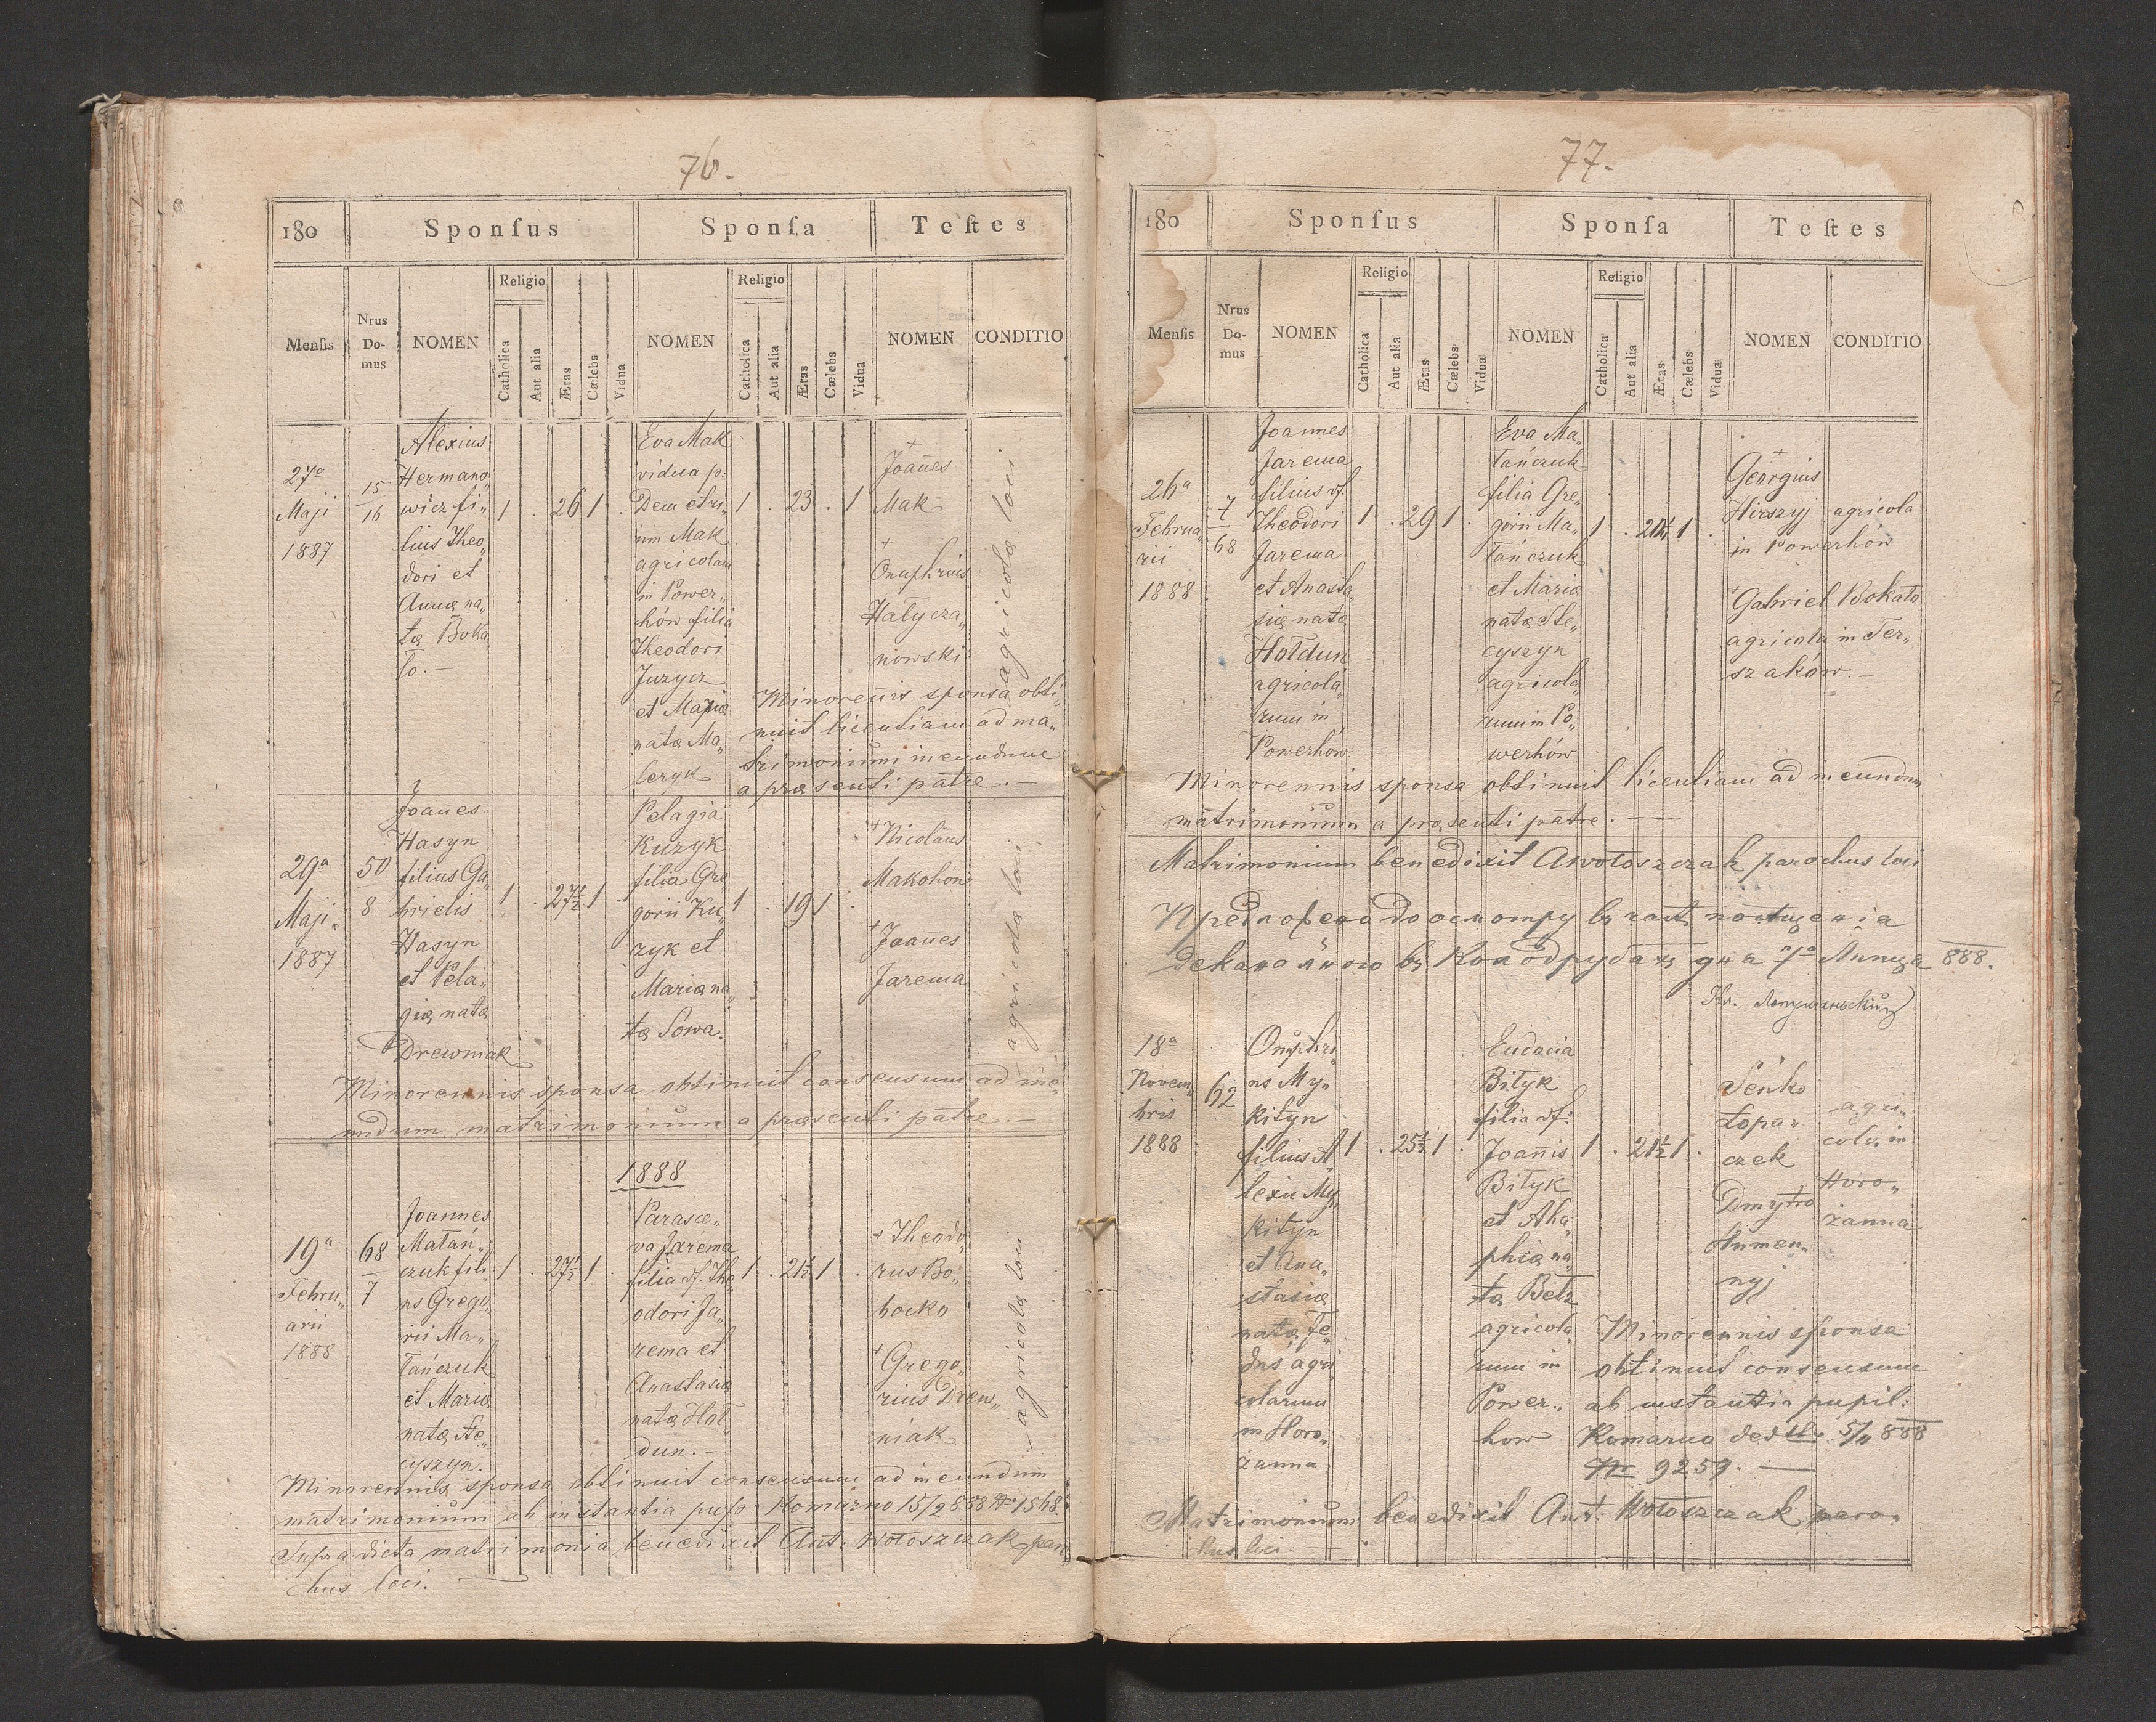 76.
180 Sponſus Sponſa Teſtes
Menſis Nrus Do- mus NOMEN Religio Catholica Aut alia Ætas Cælebs Vidua NOMEN Religio Catholica Aut alia Ætas Cælebs Vidua NOMEN CONDITIO
27ª
Maji
1887
15
16
Alexius
Hermano„
wicz fi„
lius Theo„
dori et
Annæ na„
tæ Boka
ło.—
1 . 26 1 .
Eva Mak
vidua p:
Demetri„
um Mak
agricolam
in Power„
hów filia
Theodori
Juzycz
et Mariæ
natæ Ma„
leryk
1 . 23 . 1
+
Joañes
Mak
+
Onuphrius
Hałycza„
nowski
agricolæ loci
Minorenis sponsa obti„
nuit licentiam ad ma„
trimonium ineundum
a præsenti patre.—
29ª
Maji
1887
50
8
Joañes
Hasyn
filius Ga„
brielis
Hasyn
et Pela„
giæ natæ
Drewniak
1 . 27½ 1 .
Pelagia
Kuzyk
filia Gre„
gorii Ku„
zyk et
Mariæ na„
tæ Sowa.
1 . 19 1 .
+Nicolaus
Makohon
+Joañes
Jarema
agricolæ loci
Minorennis sponsa obtinuit consensum ad ine„
undum matrimonium a præsenti patre.—
1888
19ª
Febru„
arii
1888
68
7
Joannes
Matań„
czuk fili„
us Grego„
rii Ma„
tańczuk
et Mariæ
natæ Ste„
cyszyn.
1 . 27½ 1 .
Parasce„
va Jarema
filia df. The„
odori Ja„
rema et
Anastasiæ
natæ Hoł„
dun.—
1 . 21½ 1 .
+Theodo„
rus Bo„
hocko
+Grego„
rius Drew„
niak
agricolæ loci
Minorennis sponsa obtinuit consensum ad ineundum
matrimonium ab instantia pup: Komarno 15/2 888 Nr 1568.
Supradicta matrimonia benedixit Ant. Wołoszczak paro„
chus loci.
77.
180 Sponſus Sponſa Teſtes
Menſis Nrus Do- mus NOMEN Religio Catholica Aut alia Ætas Cælebs Vidua NOMEN Religio Catholica Aut alia Ætas Cælebs Vidua NOMEN CONDITIO
26ª
Februa„
rii
1888
7
68
Joannes
Jarema
filius df.
Theodori
Jarema
et Anasta„
siæ natæ
Hołdun
agricola„
rum in
Powerhow
1 . 29 1 .
Eva Ma„
tańczuk
filia Gre„
gorii Ma„
tańczuk
et Mariæ
natæ Ste„
cyszyn
agricola„
rum in Po„
werhów
1 . 1 .
+
Georgius
Hirszyj agricola
in Powerhów
+Gabriel Bokało
agricola in Ter„
szaków.—
Minorennis sponsa obtinuit licentiam ad ineundum
matrimonium a præsenti patre.—
Matrimonium benedixit AWołoszczak parochus loci
Предложено до осмотру въ часѣ посѣщенія
деканального въ Колодрудахъ дня 7го Липця 888.
18ª
Novem„
bris
1888
62
Onuphri„
us My„
kityn
filius A„
lexii My„
kityn
et Ana„
stasiæ
natæ Fe„
duś agri„
colarum
in Horo„
żanna
1 . 25½ 1 .
Eudocia
Bityk
filia df:
Joañis
Bityk
et Aha„
phiæ na„
tæ Bełz
agricola„
rum in
Power„
how
1 . 21½ 1 .
Seńko
Łopa„
czek
Dmytro
Humen„
nyj
agri„
cola in
Horo„
żanna
Minorennis sponsa
obtinuit consensum
ab instantia pupil:
Komarno ded dto. 5/11 888
Nr 9259.—
Matrimonium benedixit Ant. Wołoszczak paro„
chus loci.—